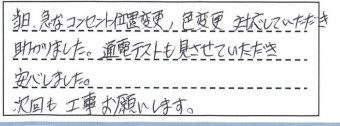 当日、急なコンセント位置変更, 色変更 対応していただき
助かりました。通電テストも見させていただき
安心しました。
次回も工事お願いします。